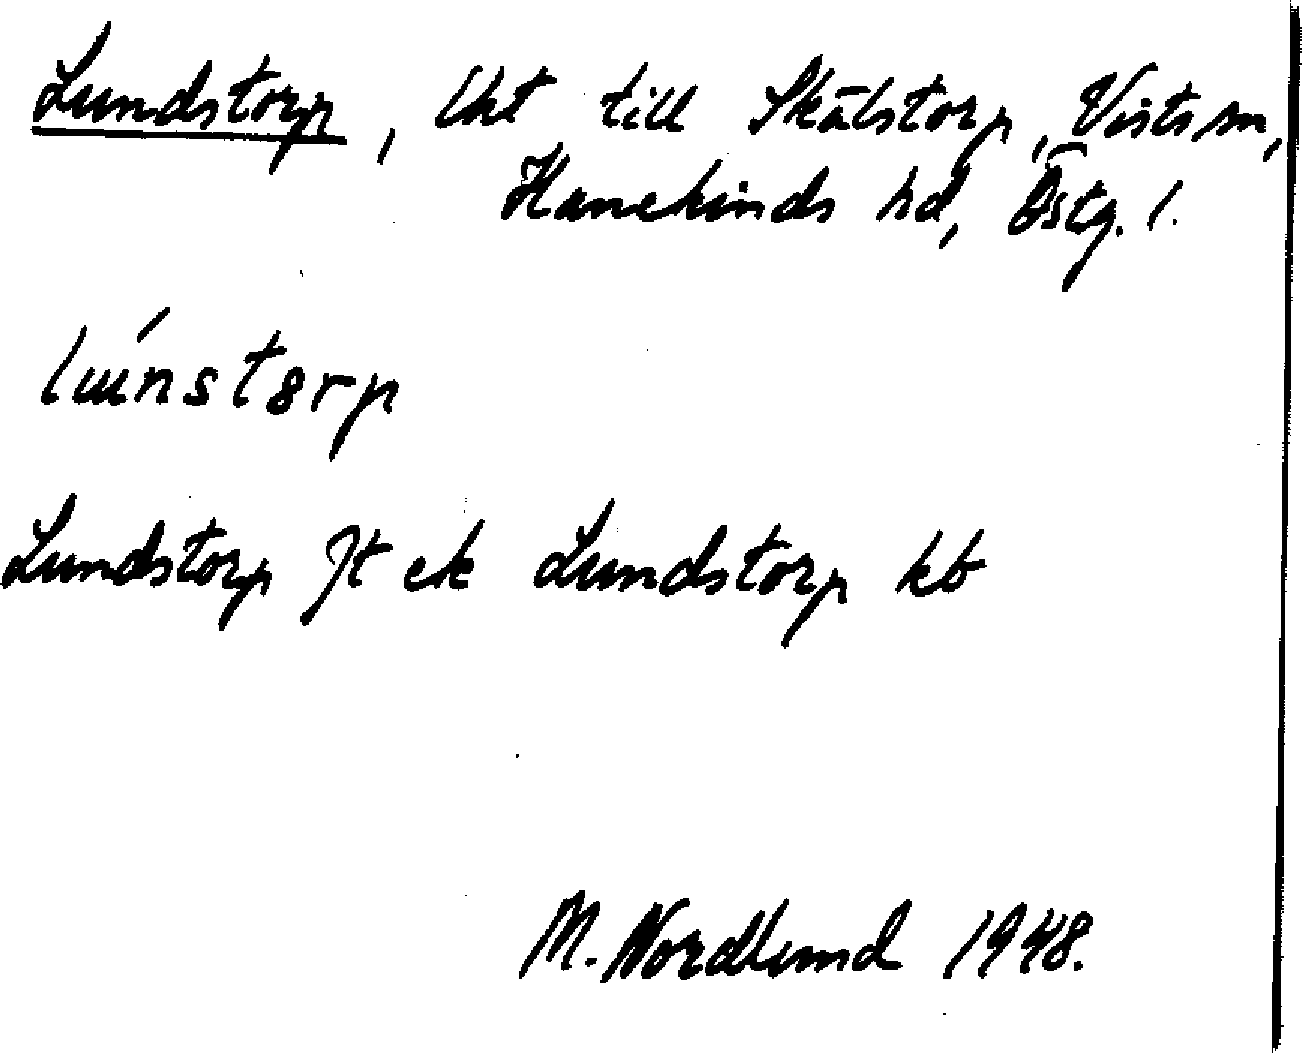 Lundstorp, lht till Skälstorp, Vists sn,
Hanekinds hd, Östg. l.
lu̇́nstȣrp
Lundstorp Jt ek Lundstorp kb
M. Nordlund 1948.